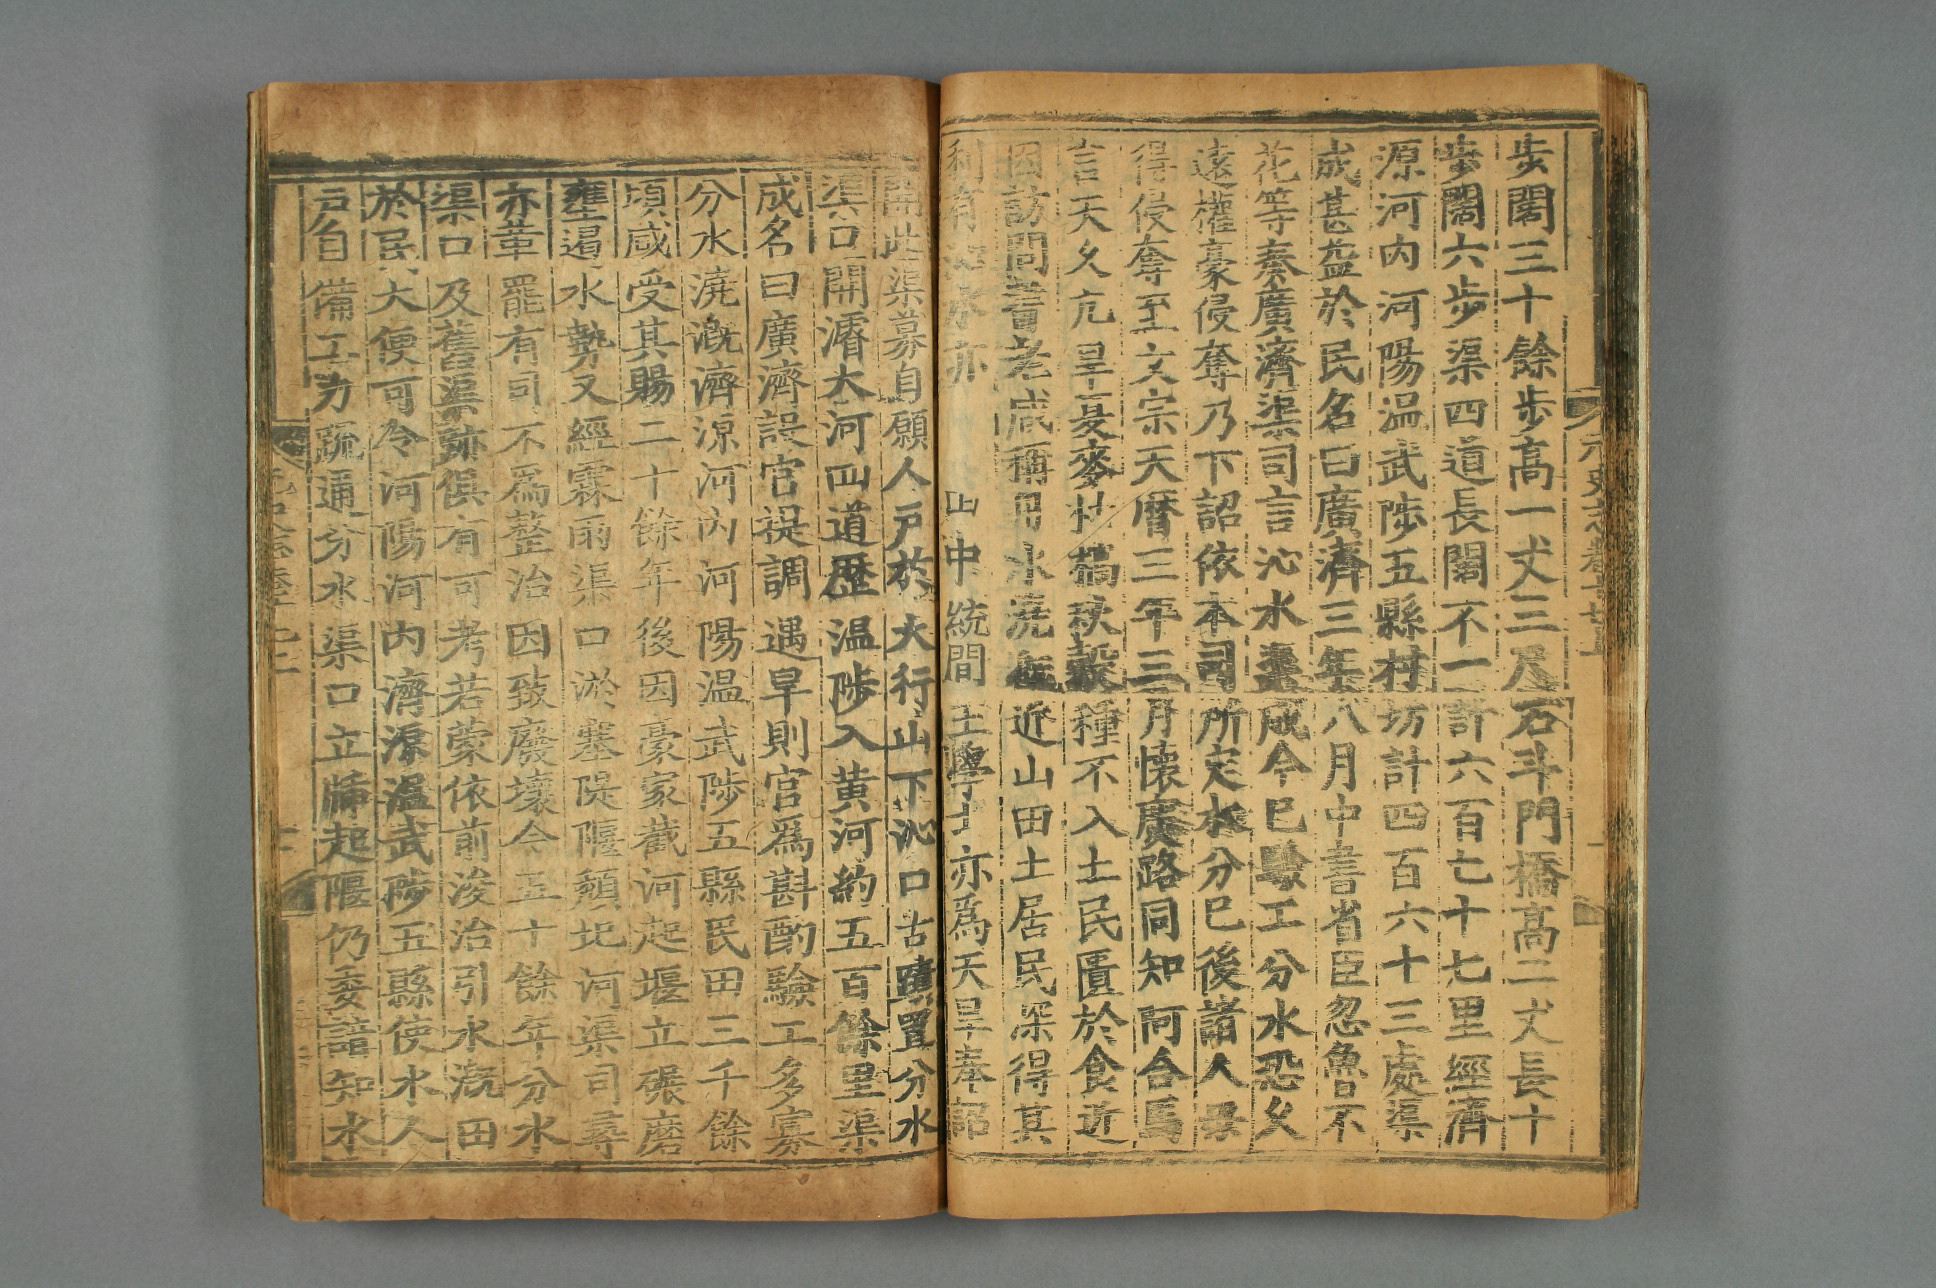 步闊三十餘步高一丈三尺石斗門橋高二丈長十
步闊六步渠四道長闊不一計六百七十七里經濟
源河內河陽溫武陟五縣村坊計四百六十三處渠
成甚益於民名曰廣濟三年八月中書省臣忽魯不
花等奏廣濟渠司言沁水渠成今已驗工分水恐久
遠權豪侵奪乃下詔依本司所定水分已後諸人毋
得侵奪至文宗天曆三年三月懷慶路同知阿合馬
言天久亢旱夏麥枯槁秋穀種不入土民匱於食近
因訪問耆老咸稱用水澆近山田土居民深得其
利有 亦 中統間王學士亦爲天旱奉詔
開此渠募自願人戶於大行山下沁口古蹟置分水
渠口開濬大河四道歷溫陟入黃河約五百餘里渠
成名曰廣濟設官提調遇旱則官爲斟酌驗工多寡
分水澆溉濟源河內河陽溫武陟五縣民田三千餘
頃咸受其賜二十餘年後因豪家截河起堰立碾磨
壅遏水勢又經霖雨渠口淤塞隄堰頹圮河渠司尋
亦革罷有司不爲整治因致廢壞今五十餘年分水
渠口及舊渠跡俱有可考若蒙依前浚治引水溉田
於民大便可令河陽河內濟源溫武陟五縣使水人
戶自備工力疏通分水渠口立牐起堰仍委諳知水